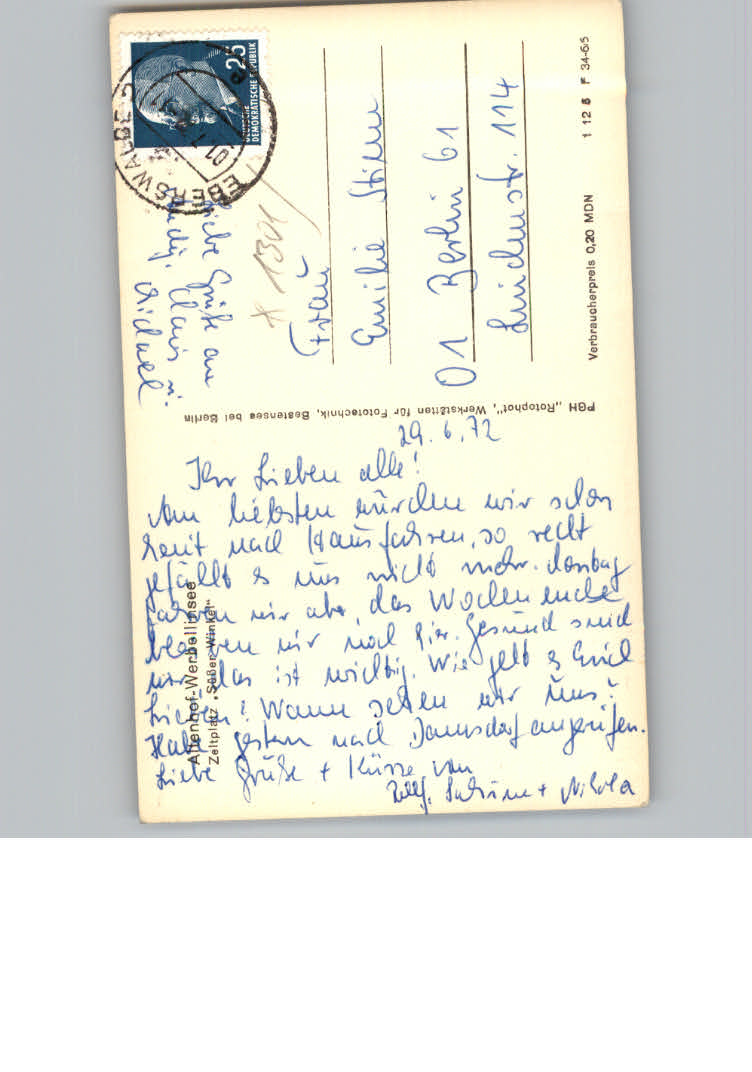 29.6.72
Ihr Lieben alle!
Am liebsten würden wir schon
heut nach Haus fahren, so recht
gefällt es uns nicht mehr.
fahren wir aber, das Wochenende
bleiben wir noch hier. Gesund sind
wir, das ist wichtig. Wie geht es Euch
Lieben? Wann sehen wir uns?
Habe gestern nach angerufen.
Liebe Grüße + Küsse von
Sabine + Nikola
Altenhof-Werbellinsee
Zeltplatz „Süßer Winkel"
PGH „Rotophot", Werkstätten für Fototechnik, Bestensee bei Berlin
Liebe Grüße an
Claus u.
Michael.
Frau
Emilie
01 Berlin 61
Lindenstr. 114
* 1301
25
DEUTSCHE
DEMOKRATISCHE REPUBLIK
EBERSWALDE
Verbraucherpreis 0,20 MDN